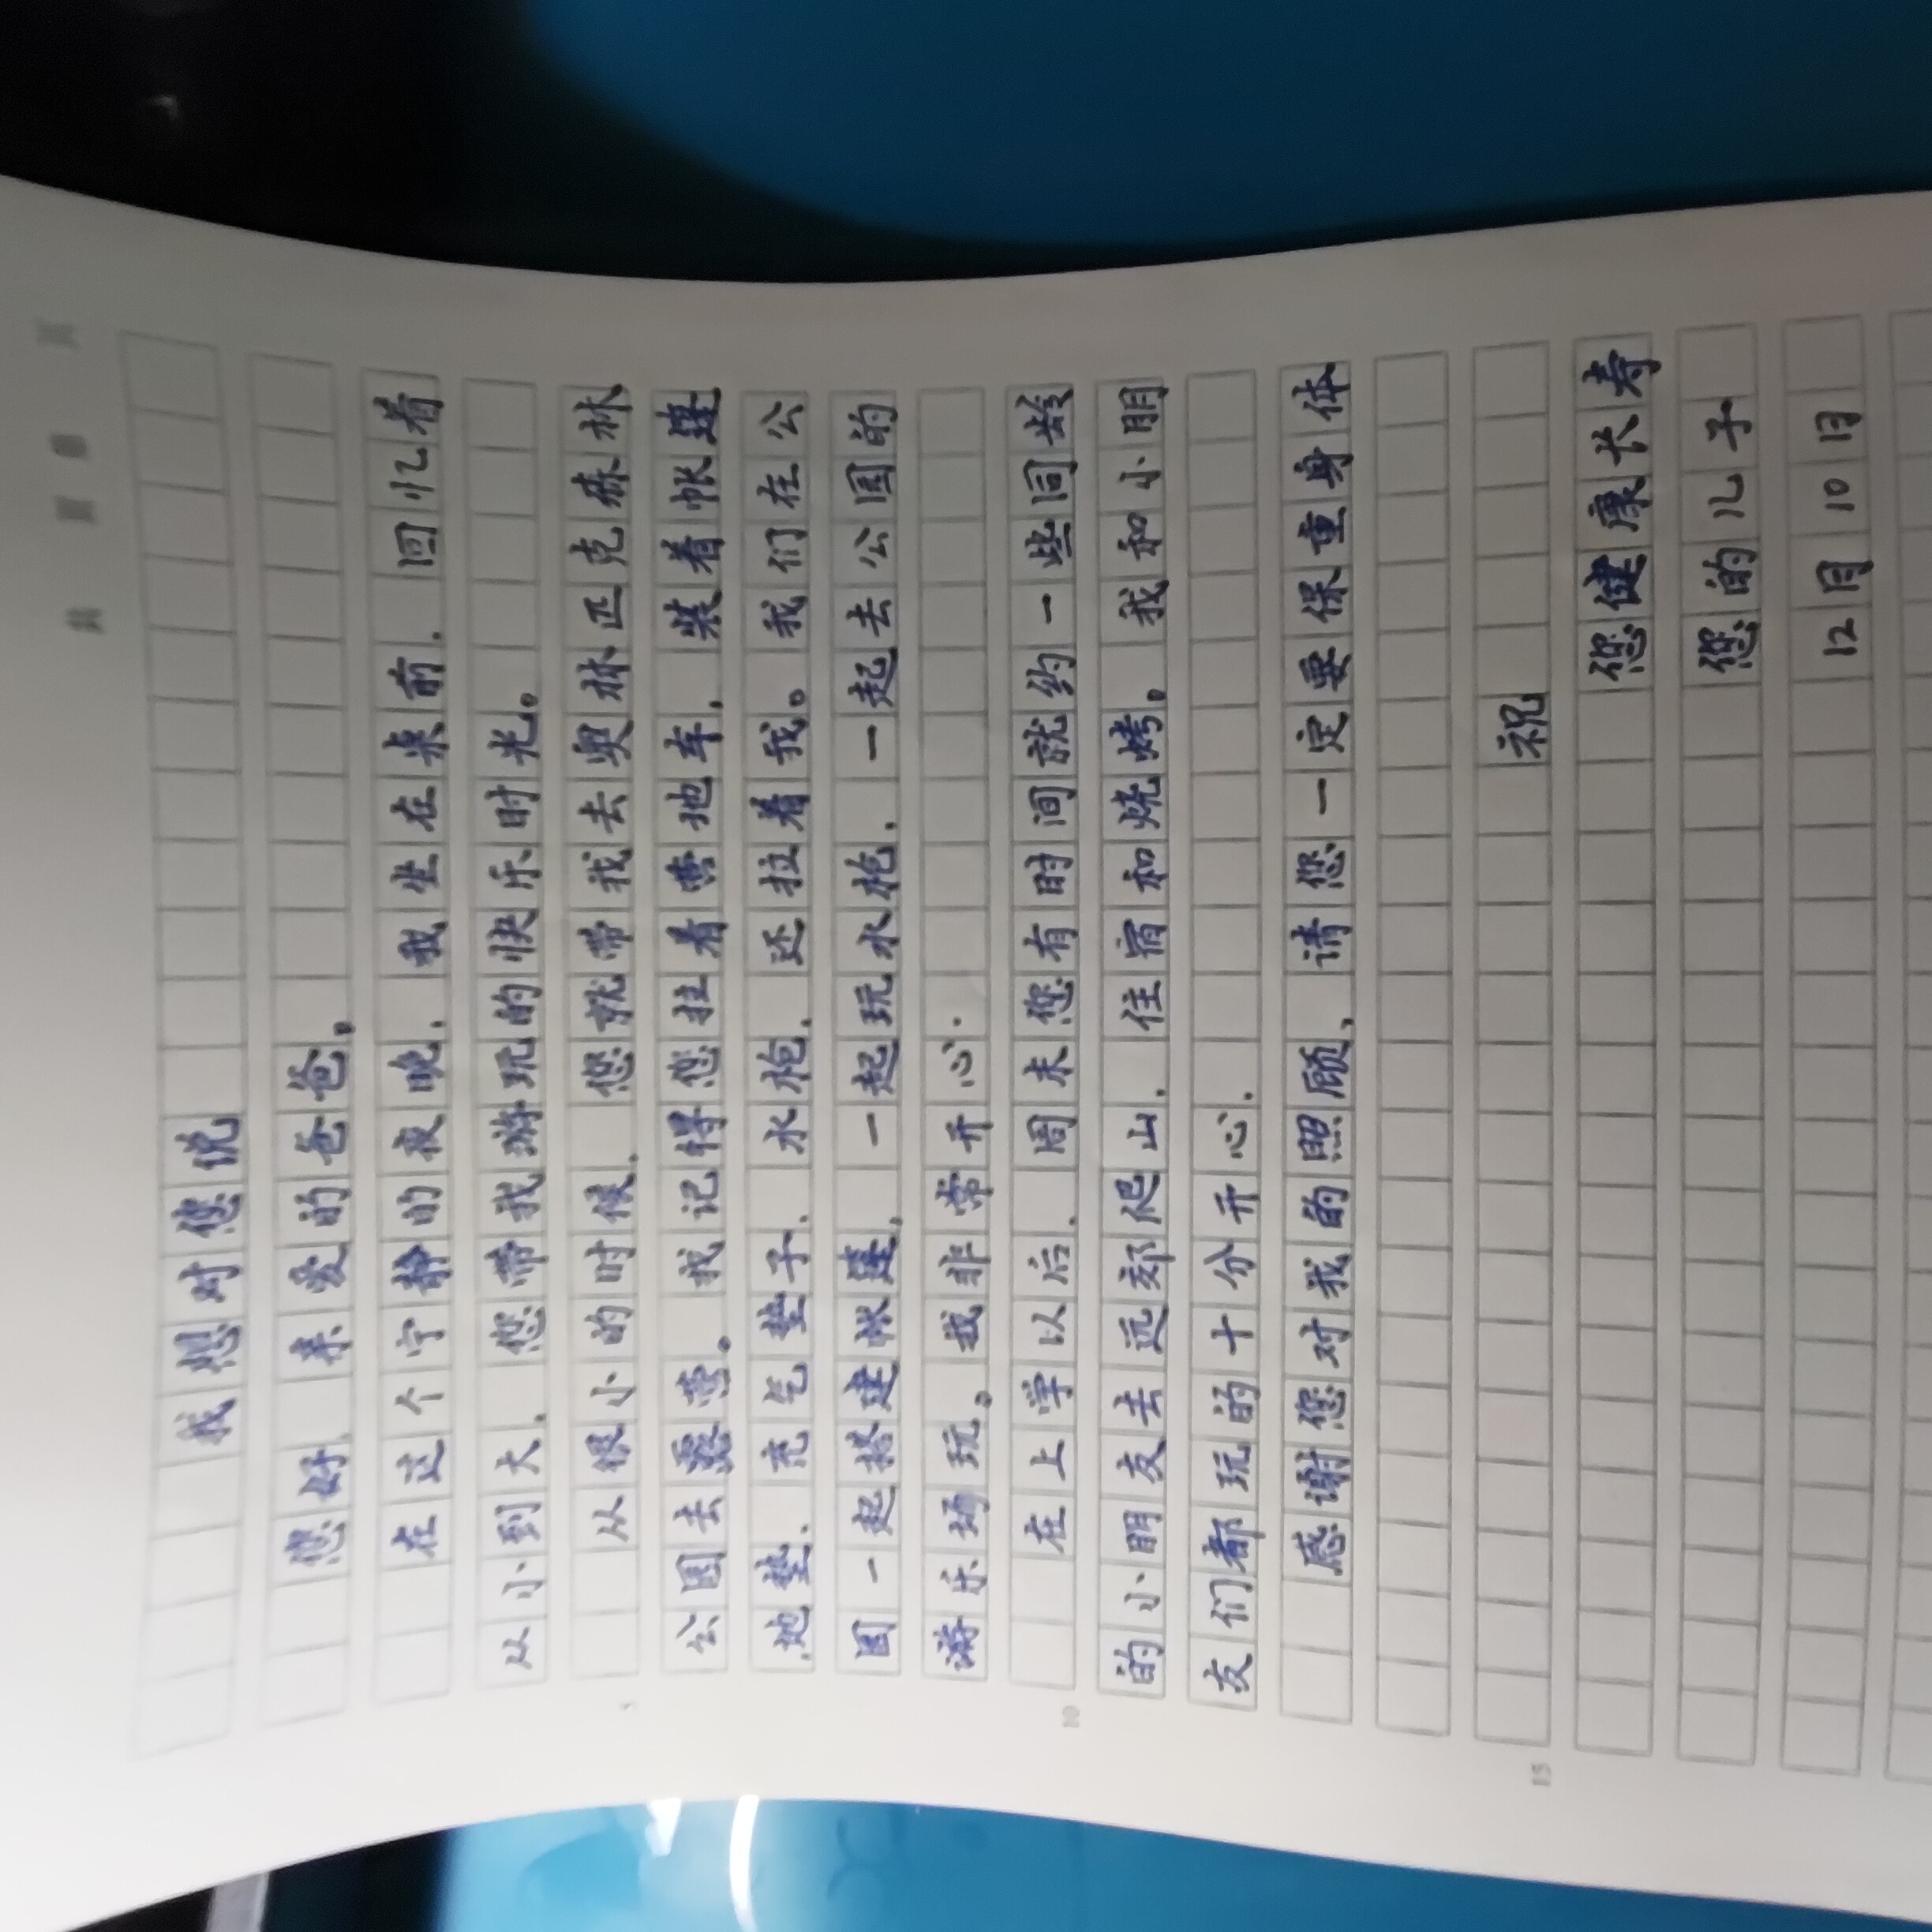 我想对您说
您好,亲爱的爸爸。
在这个宁静的夜晚,我坐在桌前,回忆着
从小到大,您带我游玩的快乐时光。
从很小的时候,您就带我去奥林匹克森林
公园去露营。我记得您拉着营地车,装着帐篷,
地垫,充气垫子,水枪,还拉着我。我们在公
园一起搭建帐篷,一起玩水枪,一起去公园的
游乐场玩。我非常开心.
在上学以后,周末您有时间就约一些同龄
的小朋友去远郊爬山,住宿和烧烤。我和小朋
友们都玩的十分开心.
感谢您对我的照顾、请您一定要保重身体
祝
您健康长寿
您的儿子
12月10日
5
10
15